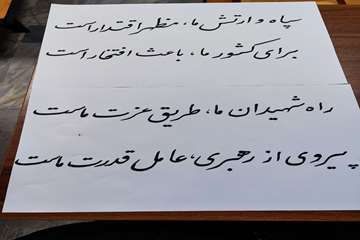 سپاه و ارتش ما، مظهر اقتدار است
برای کشور ما، باعث افتخار است
راه شهیدان ما، طریق عزت ماست
پیروی از رهبری، عامل قدرت ماست